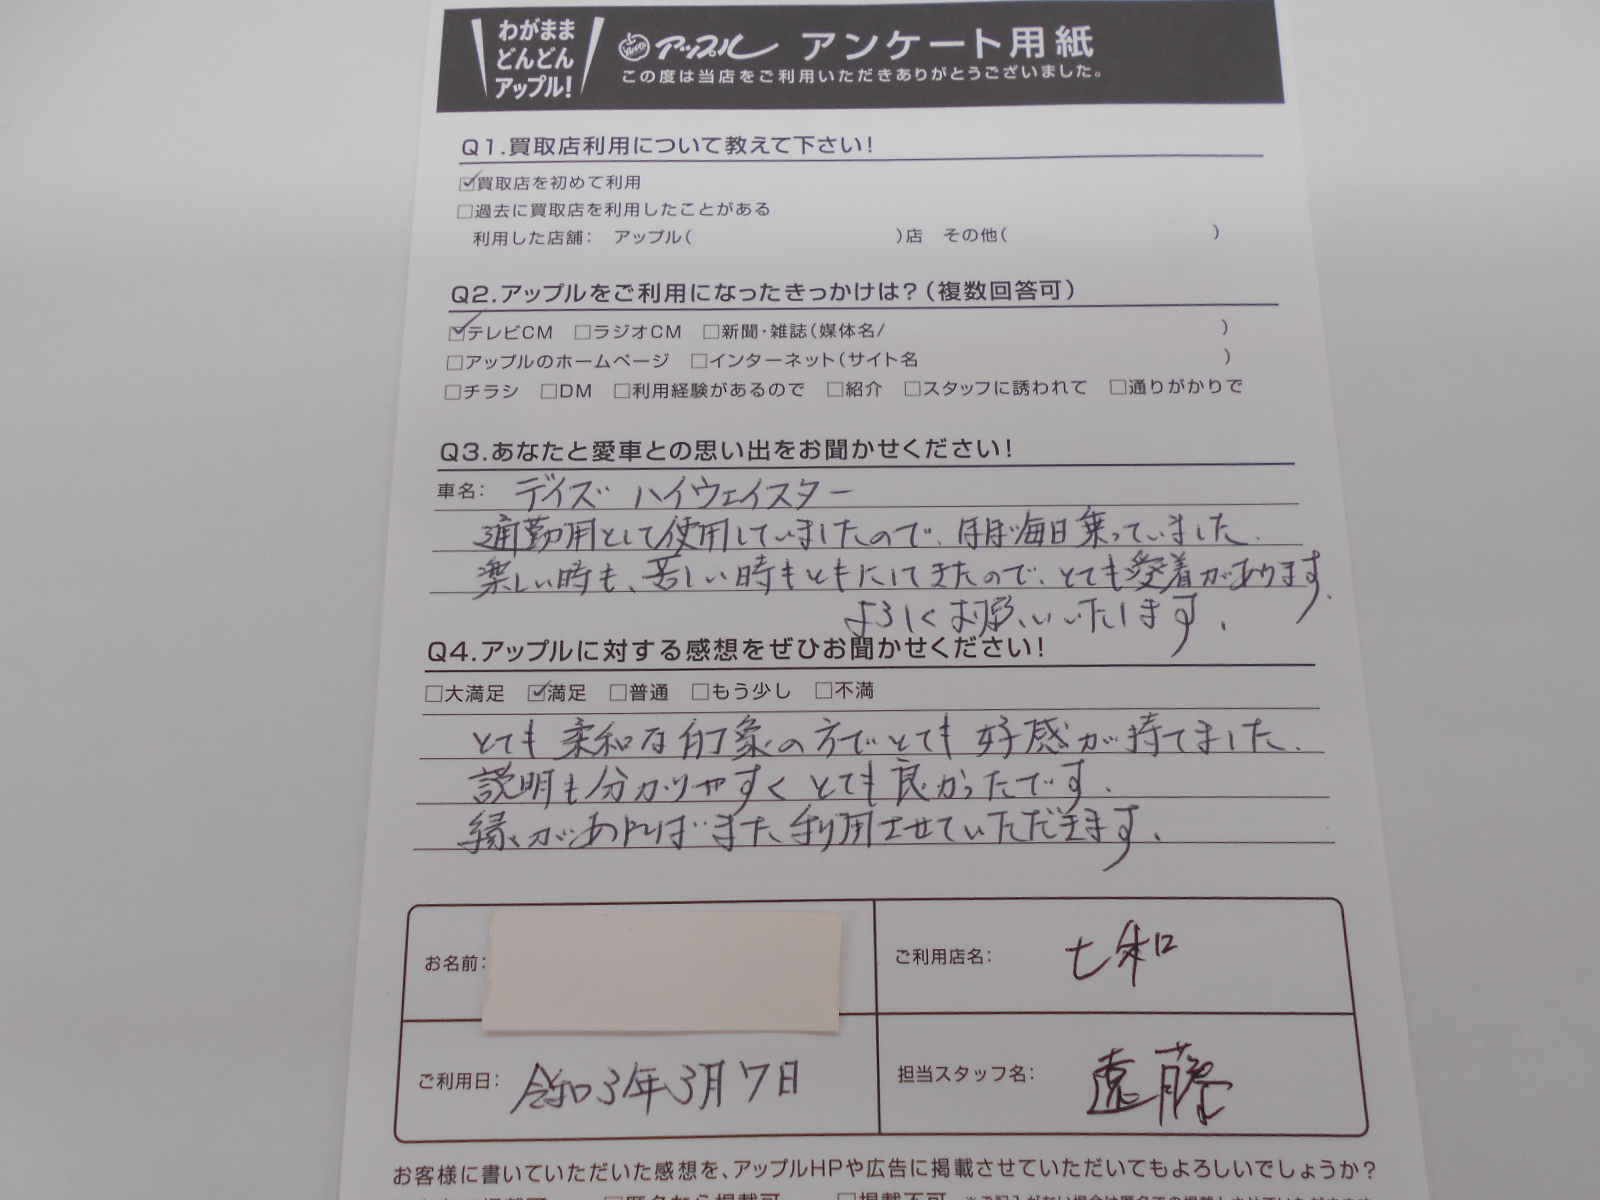 わがまま
どんどん
アップル!
アップル アンケート用紙
この度は当店をご利用いただきありがとうございました。
Q1.買取店利用について教えて下さい!
☑買取店を初めて利用
□過去に買取店を利用したことがある
利用した店舗: アップル( )店 その他( )
Q2.アップルをご利用になったきっかけは?(複数回答可)
☑テレビCM □ラジオCM □新聞・雑誌(媒体名/ )
□アップルのホームページ □インターネット(サイト名 )
□チラシ □DM □利用経験があるので □紹介 □スタッフに誘われて □通りがかりで
Q3.あなたと愛車との思い出をお聞かせください!
車名: デイズ ハイウェイスター
通勤用として使用していましたので、ほぼ毎日乗っていました.
楽しい時も、苦しい時もともにしてきたので、とても愛着があります.
よろしくお願いいたします.
Q4.アップルに対する感想をぜひお聞かせください!
□大満足 ☑満足 □普通 □もう少し □不満
とても柔和な印象の方でとても好感が持てました.
説明も分かりやすくとても良かったです.
縁があればまた利用させていただきます.
お名前:
ご利用店名: 七和
ご利用日: 令和3年3月7日
担当スタッフ名: 遠藤
お客様に書いていただいた感想を、アップルHPや広告に掲載させていただいてもよろしいでしょうか?